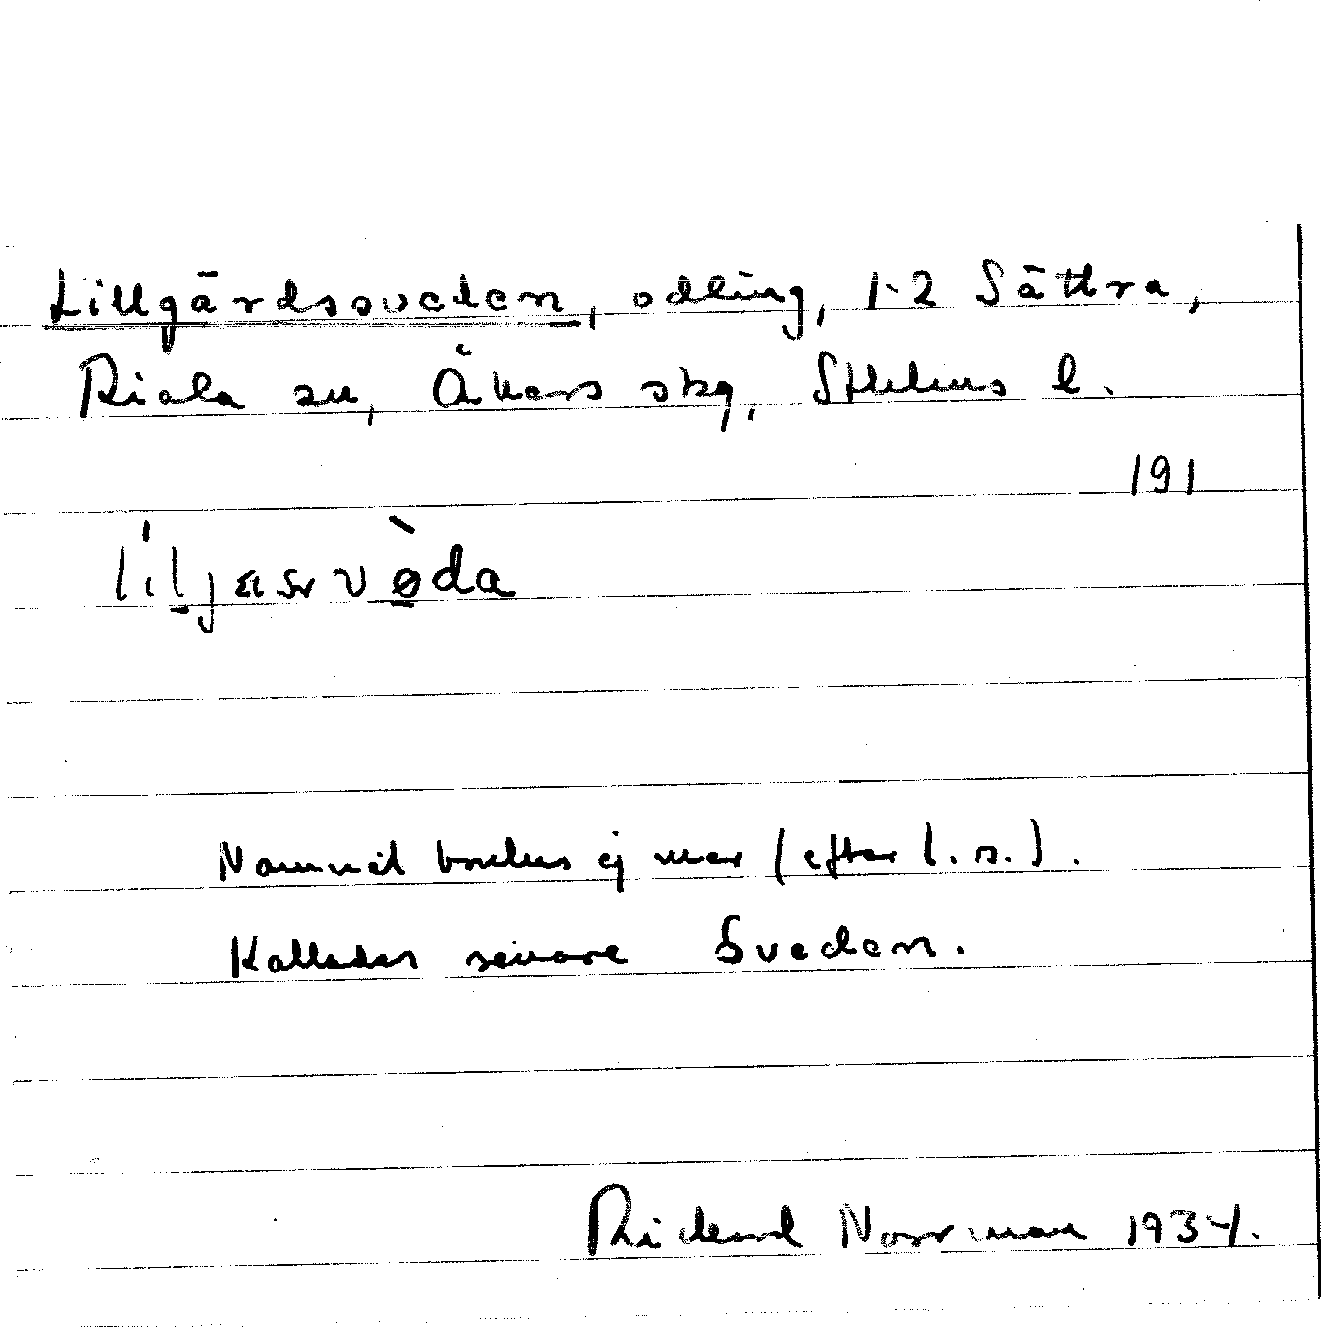 Lillgårdssveden, odling, 1-2 Sättra,
Riala sn, Åkers skg, Sthlms l.
191
Namnet brukas ej mer (efter l. s.).
Kallades senare Sveden.
Rickard Norrman 1934.